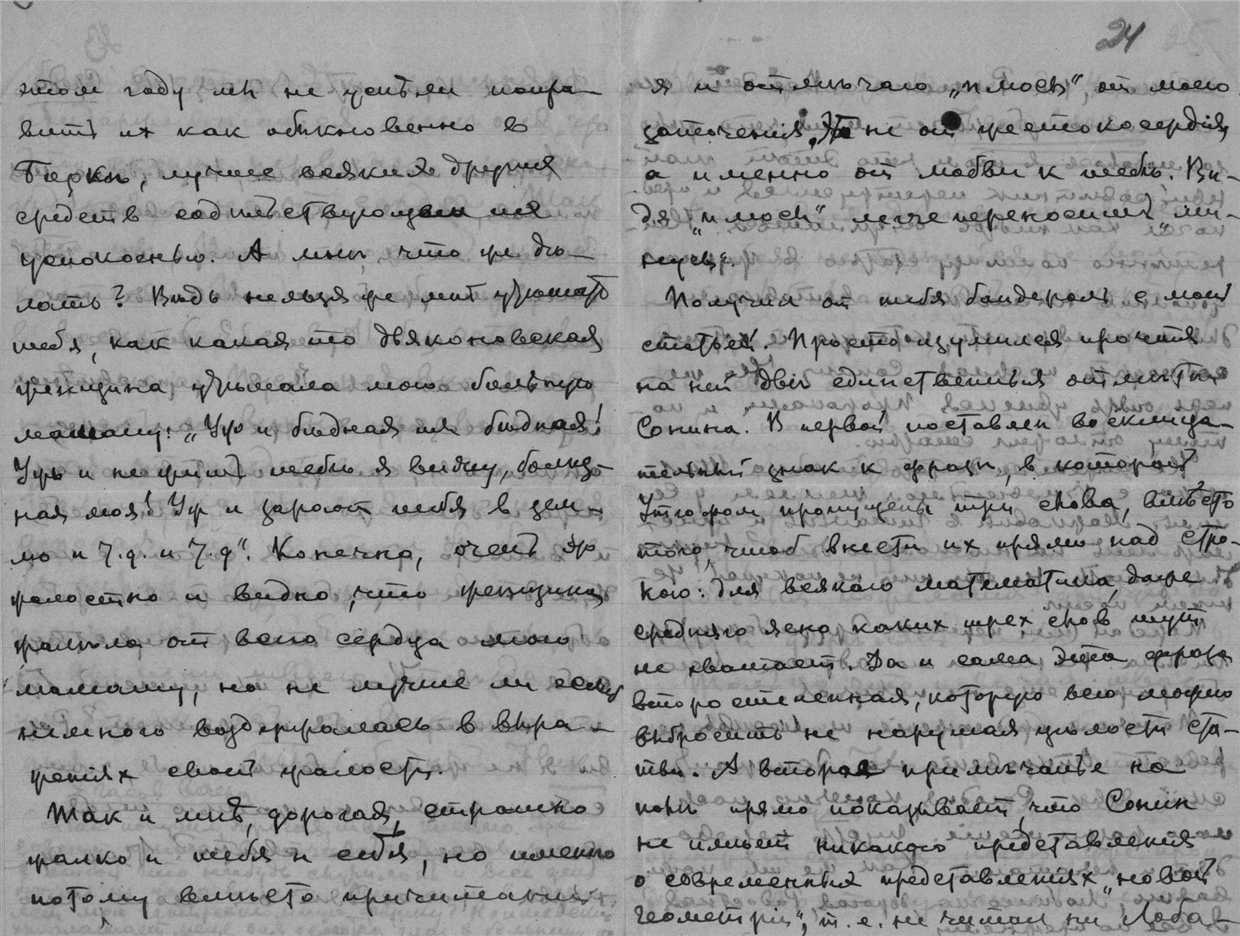 этом году мы не успѣли напра-
вить их как обыкновенно в
Борки, лучшее всяких других
средств содѣйствующее их
успокоенью. А мнѣ, что же дѣ-
лать? Вѣдь нельзя же мнѣ утѣшать
тебя, как какая то дьяконовская
женщина, утѣшала мою больную
мамашу: „Уж и бѣдная ты бѣдная!
Уж и не жить тебѣ я вижу, болѣз-
ная моя! Уж и зароют тебя в зем-
лю и т.д. и т.д“. Конечно, очень
жалостно и видно, что женщина
жалѣла от всего сердца мою
мамашу, но не лучше ли еслиб
немного воздержалась в выра-
жениях своей жалости.
Так и мнѣ, дорогая, страшно
жалко и тебя и себя, но именно
потому вмѣсто причитаний
24
я и отмѣчаю „плюсы“ от моего
заточения. Это не от жестокосердія
а именно от любви к тебѣ. Ви-
дя „плюсы“ легче переносить „ми-
нусы“.
Получил от тебя бандероль с моей
статьей. Просто изумился прочтя
на ней двѣ единственныя отмѣтки
Сонина. В первой поставлен восклица-
тельный знак к фразѣ, в которой
пропущены три слова, вмѣсто
того, чтоб внести их прямо над стро-
кою: для всякаго математика, даже
средняго ясно каких трех слов тут
не хватает. Да и сама эта фраза
второстепенная, которую всю можно
выбросить не нарушая цѣлости ста-
тьи. А второе примѣчанье на
поле прямо показывает, что Сонин
не имѣет никакого представления
о современных представлениях „новой
геометріи“, т.е. не читал ни Лоба-